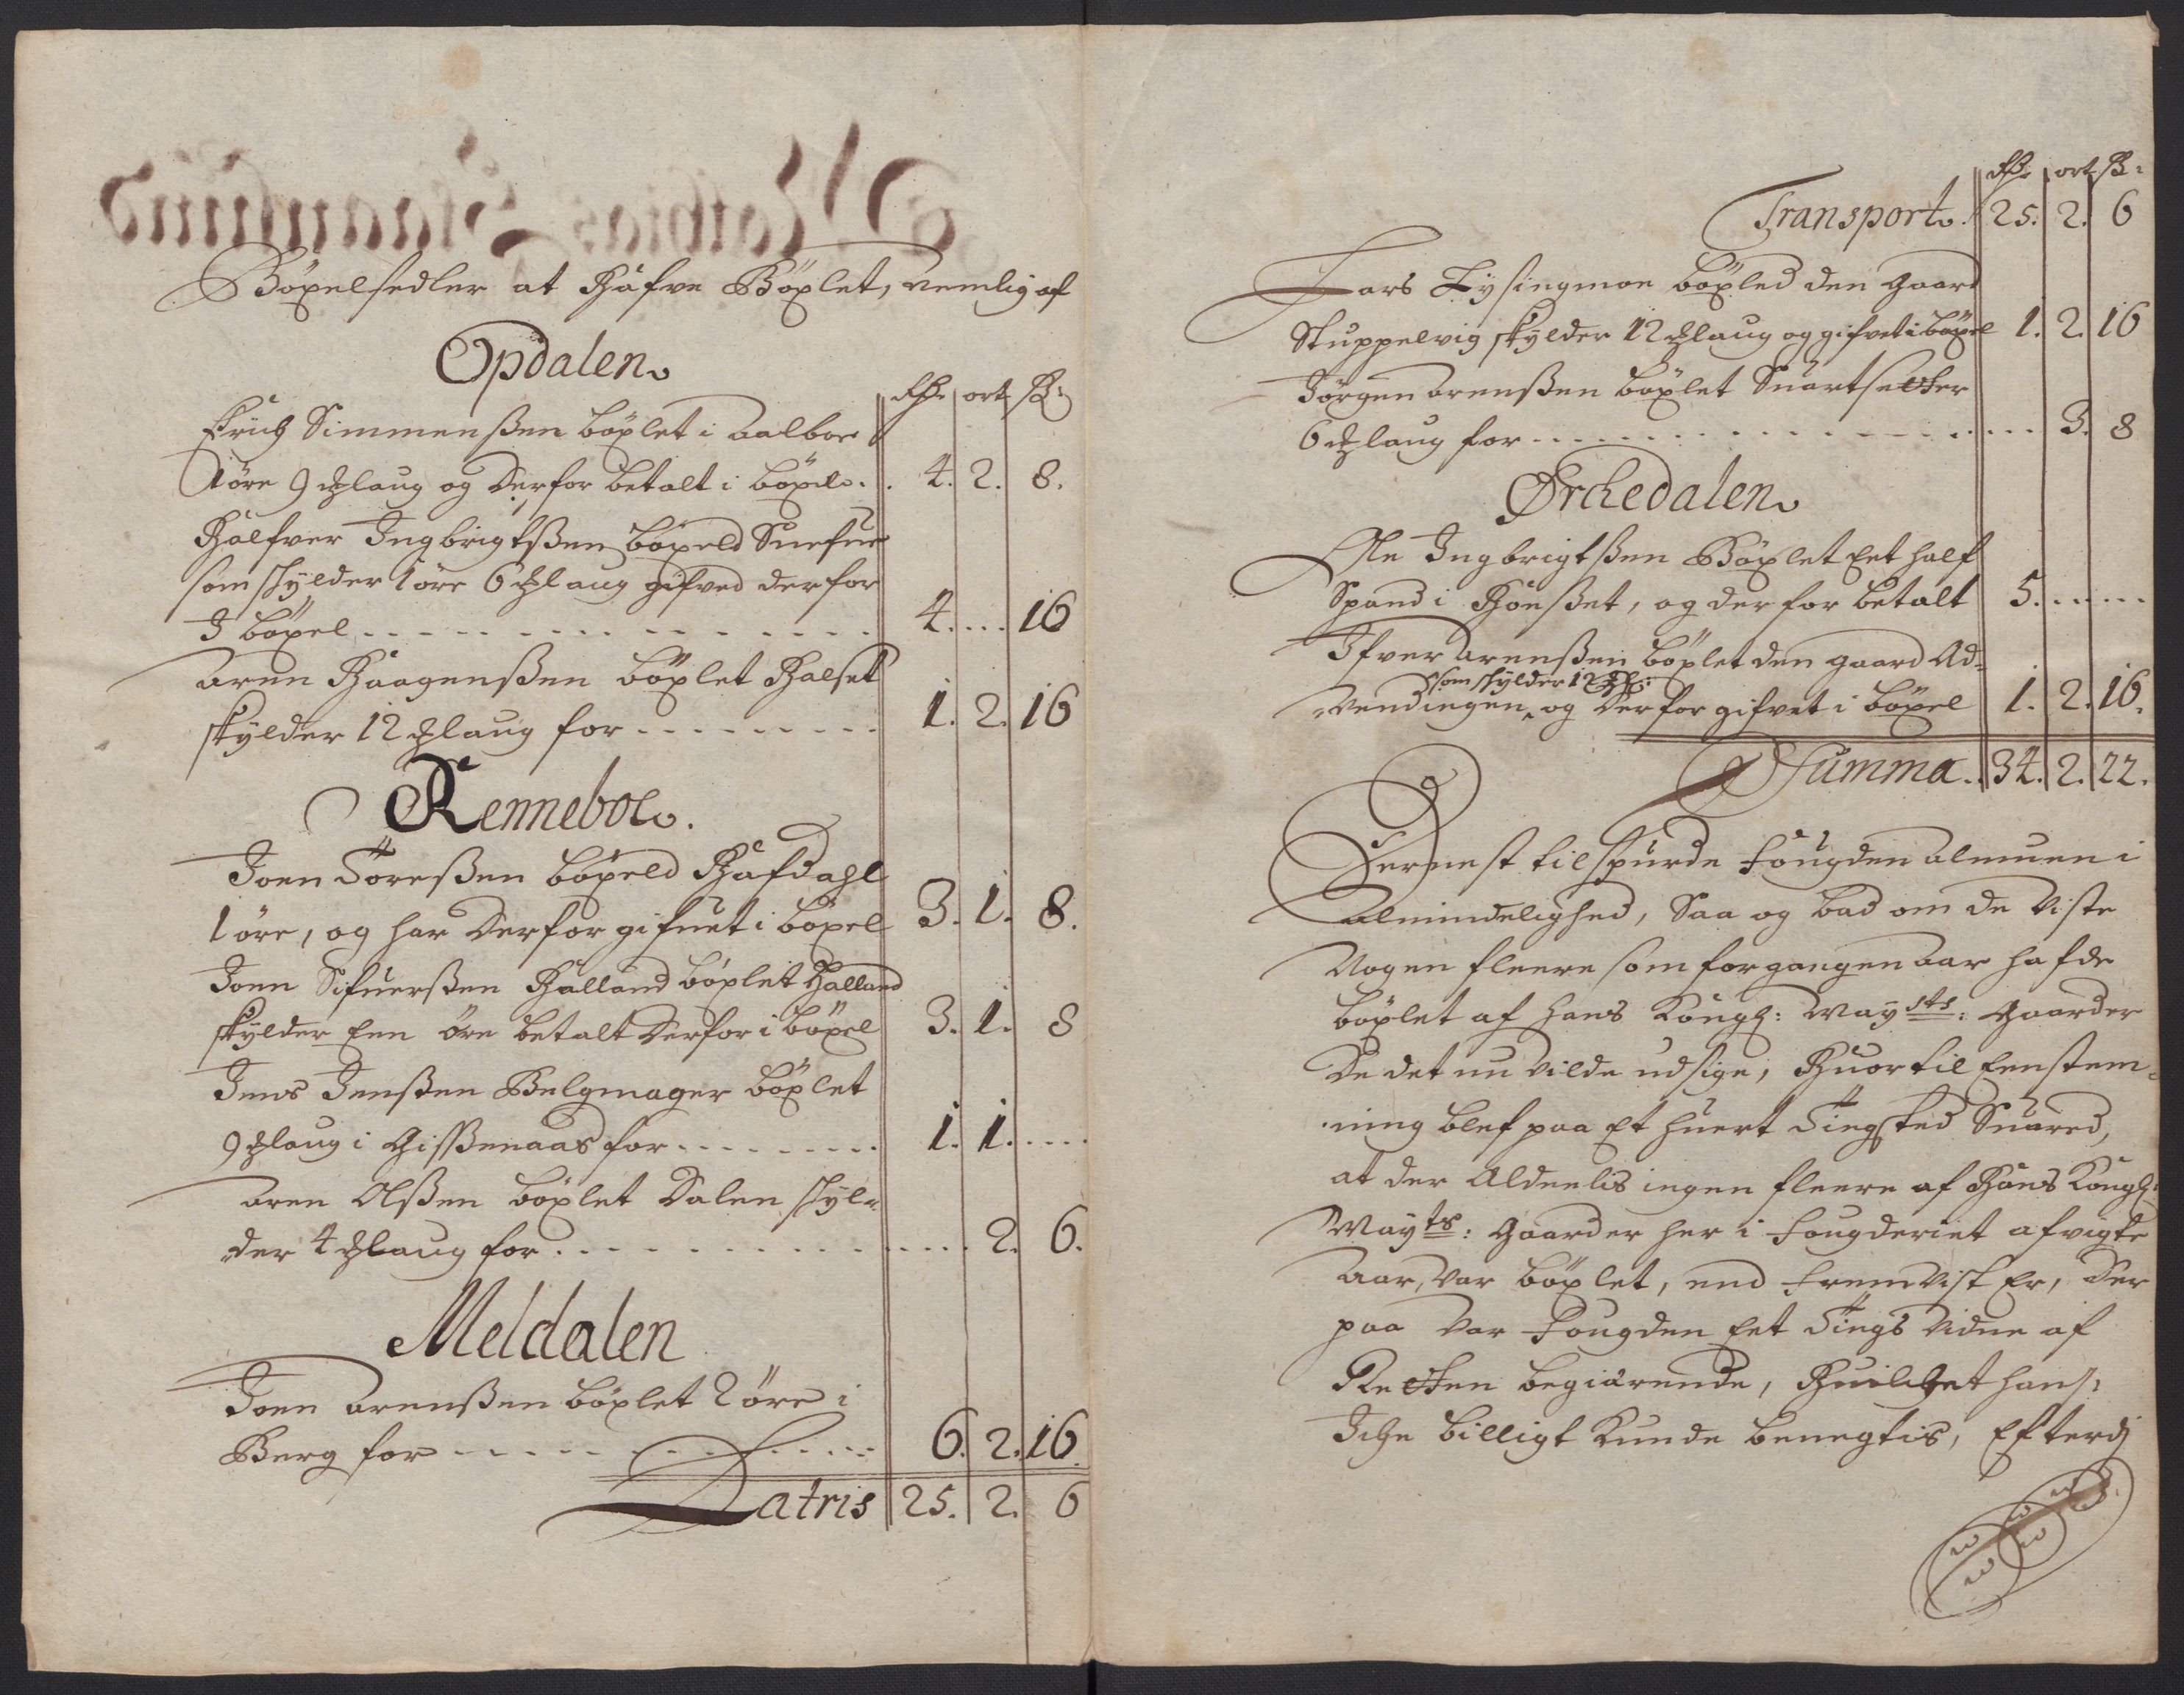 Böxelsedler at Hafve Böxlet, nemlig af
Opdalen
Rdr ort ß:
Erich Simmenßen böxlet i Aalboe
1 öre 9 Mklaug og Derfor betalt i böxel . 4. 2. 8.
Halfver Ingbrigtßen böxeld Snefue
som skylder 1 öre 6 Mklaug gifved derfor
I böxel 4. 16
Aren Haagenßen böxlet Halset
skylder 12 Mklaug for 1. 2. 16
Renneboe.
Joen Toreßen böxeld Hafdahl
1 öre, og har Derfor gifuet i böxel 3. 1. 8.
Joen Sifuerßen Halland böxlet Halland
skylder Een öre betalt Derfor i böxel 3. 1. 8
Jens Jenßen Belgmager böxlet
9 Mklaug i Gißenaas for 1. 1.
Aren Olßen böxlet Dalen skyl-
der 4 Mklaug for 2. 6.
Meldalen
Joen Arenßen böxlet 2 öre i
Berg for 6. 2. 16
Latris 25. 2. 6
Rdr ort ß:
Transport. 25. 2. 6
Lars Lysingmoe böxled den gaard
Stuppelvig skylder 12 Mklaug og gifvet i böxel 1. 2. 16
Jörgen Arenßen böxlet Suartsetter
6 Mklaug for 3. 8
Ørchedalen
Ole Ingbrigtßen Böxlet Eet half
Spand i Hönßet, og der for betalt 5.
Ifver Arenßen böxlet den gaard Ad-
som skylder 12 Mkl:
vendingen og Derfor gifvet i böxel 1. 2. 16.
Summa. 34. 2. 22.
Dernest tilspurde Fougden Almuen i
Almindelighed, Saa og bad om de Viste
Nogen fleere som forgangen Aar hafde
böxlet af Hans Kongl: Mayts: Gaarder
De det nu vilde udsige, Huortil Eenstem-
ning blef paa Et huert Tingsted Suared,
at der Aldeelis ingen fleere af Hans Kongl:
Mayts: Gaarder her i Fougderiet afvigte
Aar, Var böxlet, end Fremvist Er, Der
paa Var Fougden Eet Tings Vidne af
Retten begiærende, Huilchet hans
Iche billigt Kunde benegtis, Efterdj